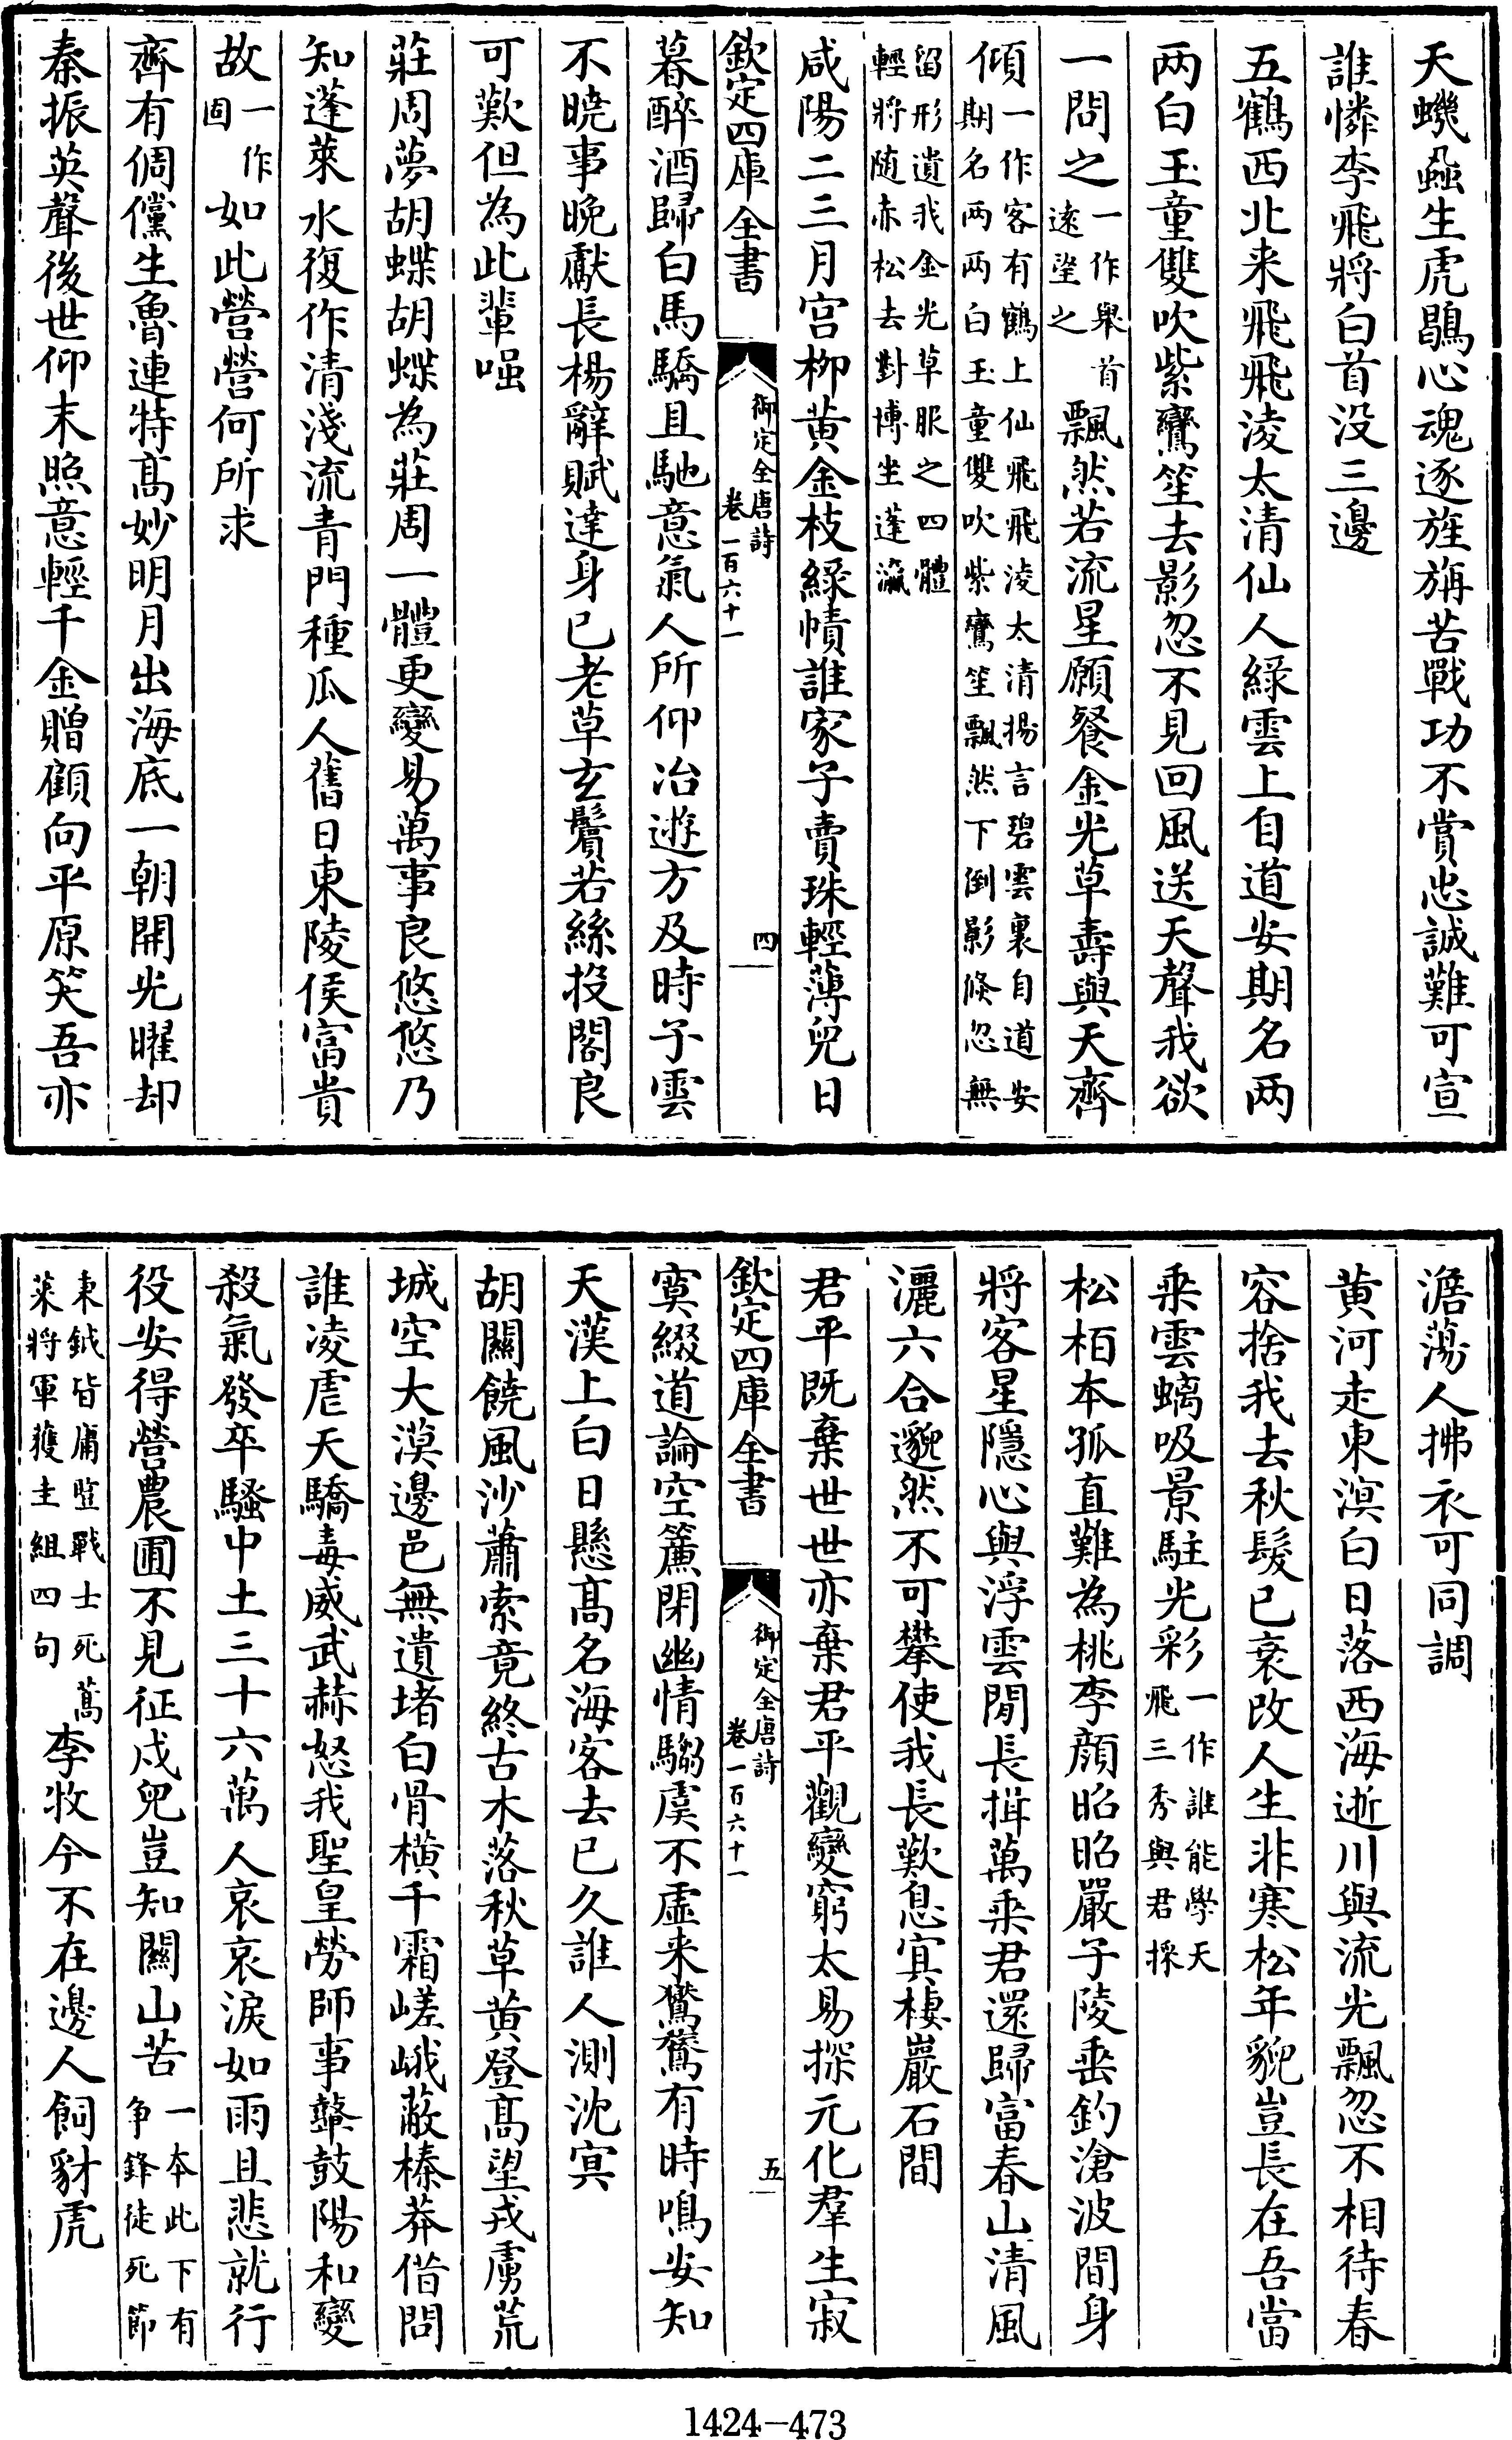 天蟣蝨生虎鶡心魂逐旌旃苦戰功不賞忠誠難可宣
誰憐李飛將白首没三邊
五鶴西北来飛飛淩太清仙人緑雲上自道安期名两
两白玉童雙吹紫鸞笙去影忽不見回風送天聲我欲
一問之一作舉首遠望之飄然若流星願餐金光草壽與天齊
傾一作客有鶴上仙飛飛淩太清揚言碧雲裏自道安
期名两两白玉童雙吹紫鸞笙飄然下倒影倐忽無
留形遺我金光草服之四體
輕將随赤松去對博坐蓬瀛
咸陽二三月宫栁黄金枝緑幘誰家子賣珠輕薄兒日
欽定四庫全書
御定全唐詩
卷一百六十一
四
暮醉酒歸白馬驕且馳意氣人所仰冶遊方及時子雲
不曉事晚獻長楊辭賦達身已老草玄鬢若絲投閣良
可歎但為此輩嗤
莊周夢胡蝶胡蝶為莊周一體更變易萬事良悠悠乃
知蓬萊水復作清淺流青門種瓜人舊日東陵侯富貴
故一作固如此營營何所求
齊有倜儻生魯連特髙妙明月出海底一朝開光曜却
秦振英聲後世仰末照意輕千金贈顧向平原笑吾亦
澹蕩人拂衣可同調
黄河走東溟白日落西海逝川與流光飄忽不相待春
容捨我去秋髮已衰改人生非寒松年貌豈長在吾當
乗雲螭吸景駐光彩一作誰能學天飛三秀與君採
松柏本孤直難為桃李顔昭昭嚴子陵垂釣滄波間身
將客星隱心與浮雲閒長揖萬乗君還歸富春山清風
灑六合邈然不可攀使我長歎息㝠棲巖石間
君平既棄世世亦棄君平觀變窮太易探元化羣生寂
欽定四庫全書
御定全唐詩
卷一百六十一
五
寞綴道論空簾閉幽情騶虞不虚来鸑鷟有時鳴安知
天漢上白日懸髙名海客去已久誰人測沈㝠
胡關饒風沙蕭索竟終古木落秋草黄登髙望戎虜荒
城空大漠邊邑無遺堵白骨横千霜嵯峨蔽榛莽借問
誰淩虐天驕毒威武赫怒我聖皇勞師事鼙鼓陽和變
殺氣發卒騷中土三十六萬人哀哀淚如雨且悲就行
役安得營農圃不見征戍兒豈知關山苦一本此下有争鋒徒死節
秉鉞皆庸竪戰士死蒿萊將軍獲圭組四句李牧今不在邊人飼豺虎
1424－473